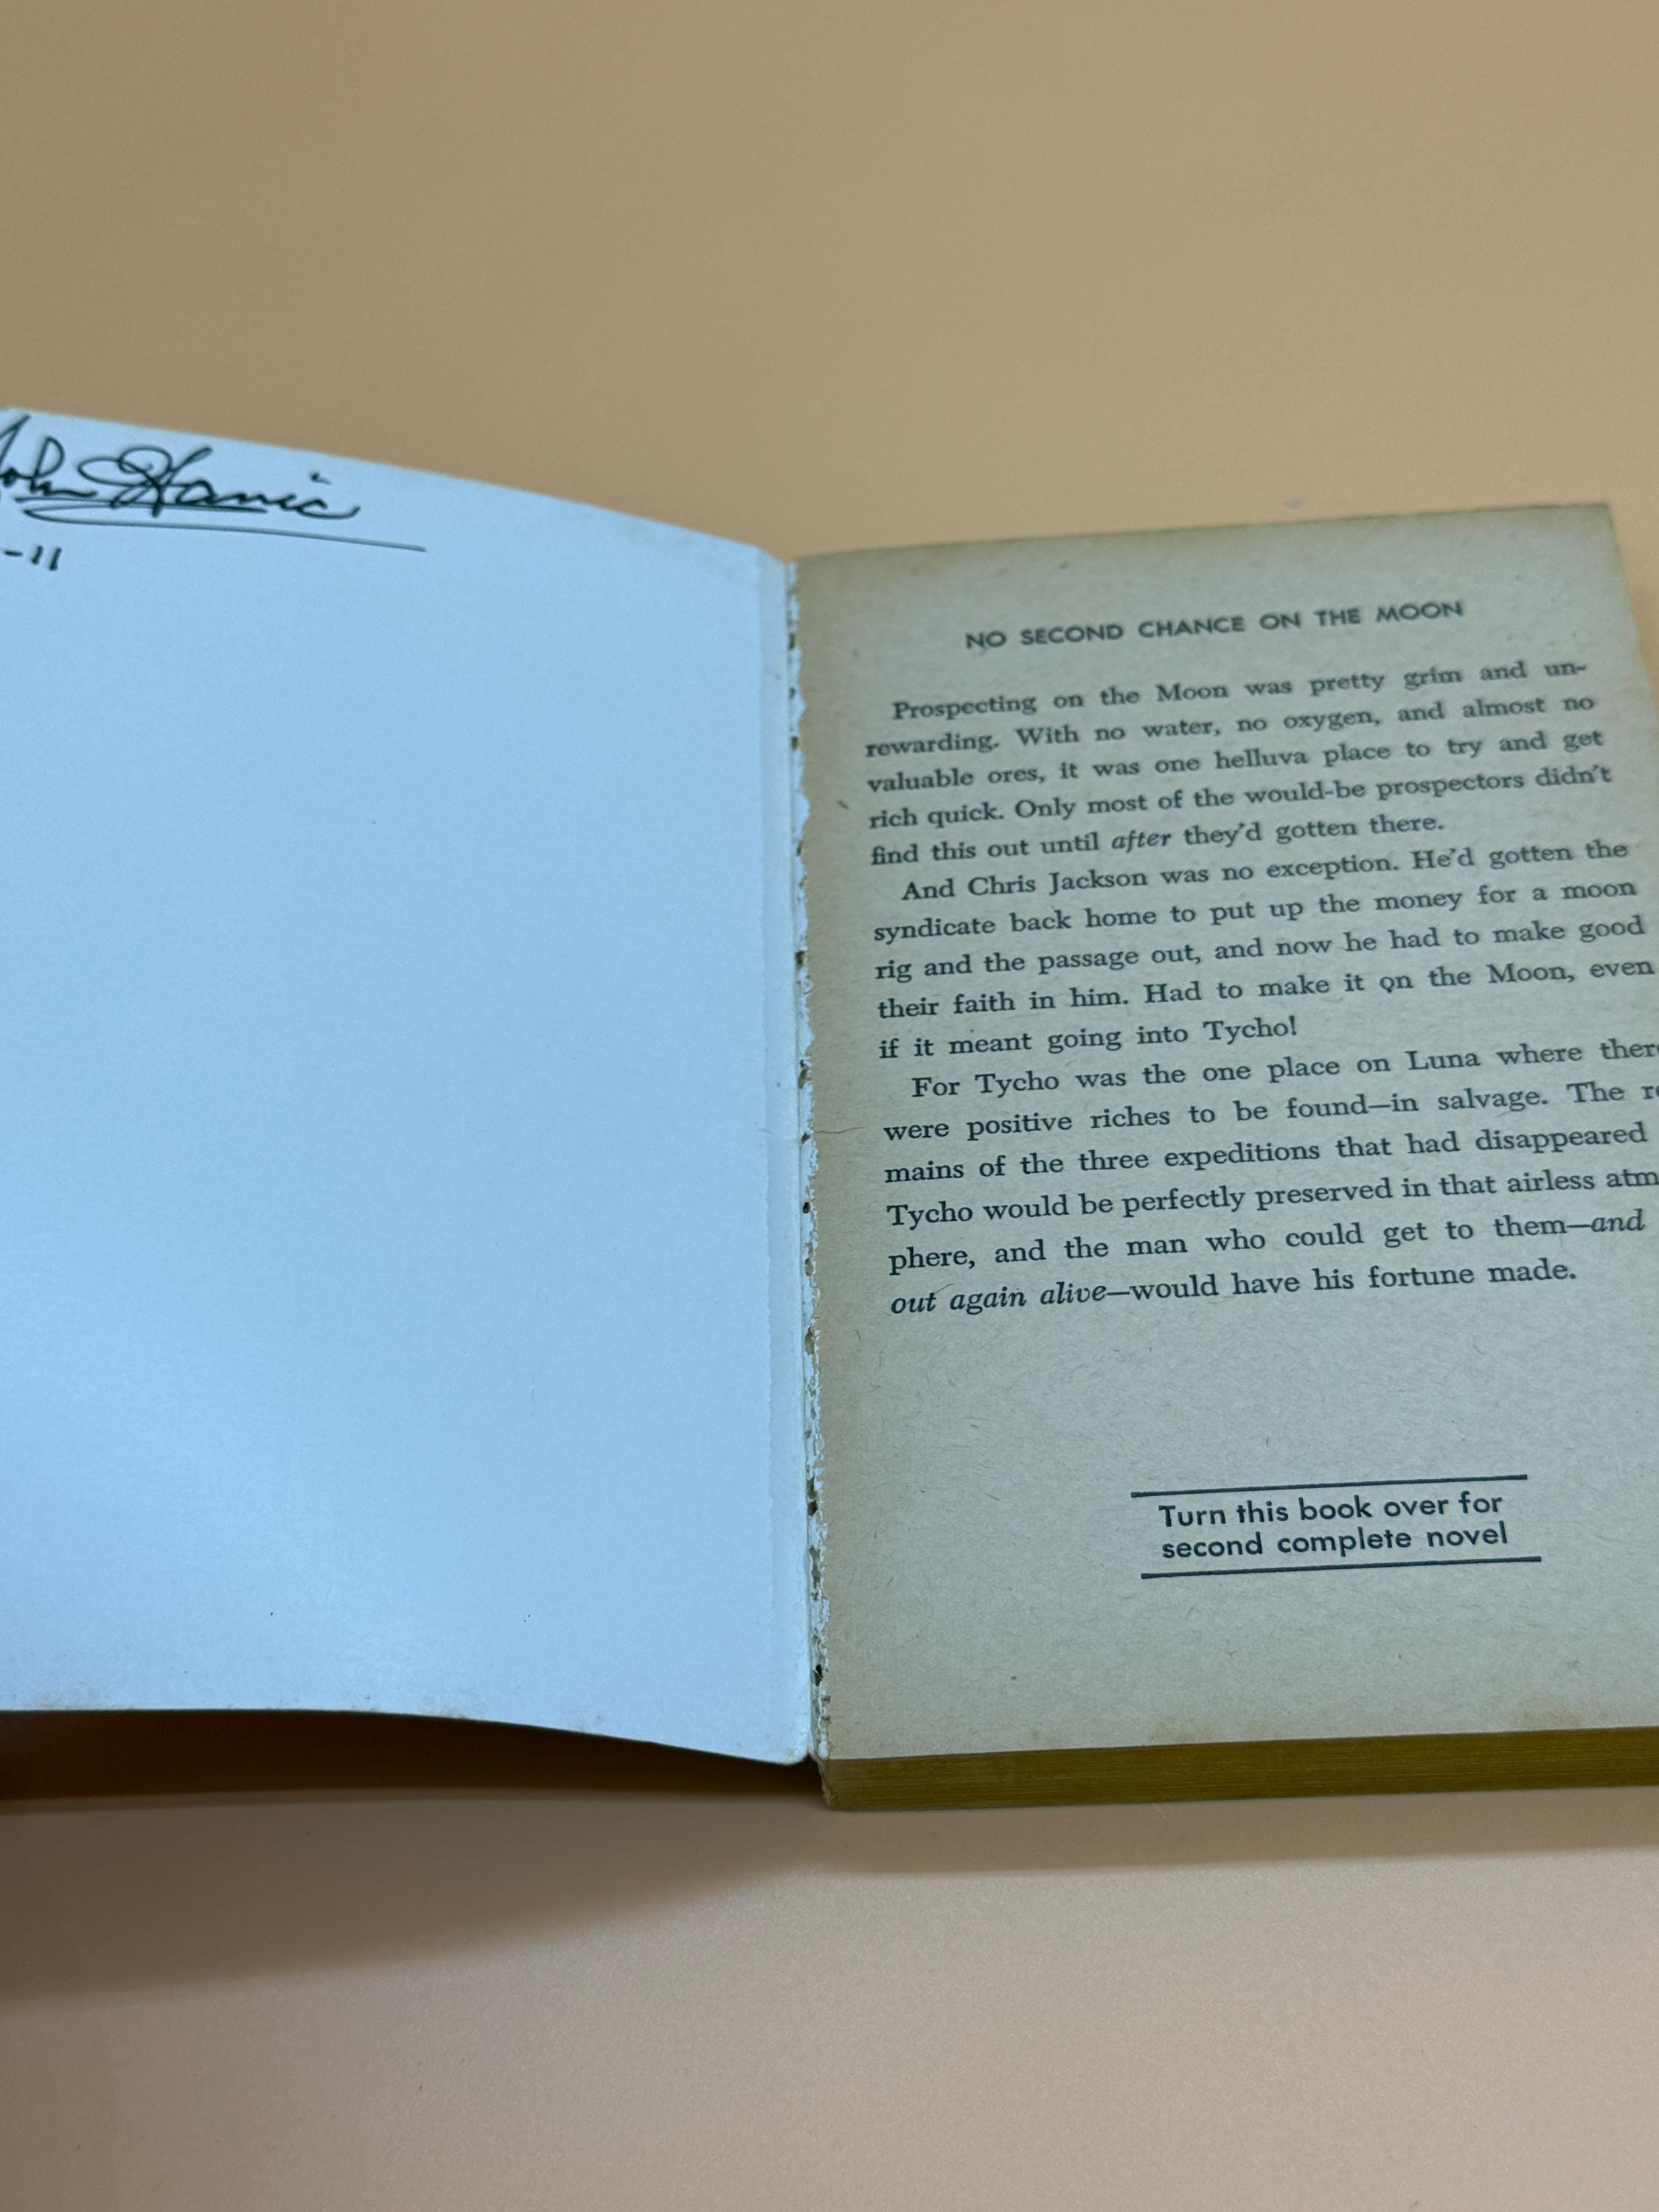 John Hanic
-11
NO SECOND CHANCE ON THE MOON
Prospecting on the Moon was pretty grim and un-
rewarding. With no water, no oxygen, and almost no
valuable ores, it was one helluva place to try and get
rich quick. Only most of the would-be prospectors didn't
find this out until after they'd gotten there.
And Chris Jackson was no exception. He'd gotten the
syndicate back home to put up the money for a moon
rig and the passage out, and now he had to make good
their faith in him. Had to make it on the Moon, even
if it meant going into Tycho!
For Tycho was the one place on Luna where there
were positive riches to be found—in salvage. The re
mains of the three expeditions that had disappeared
Tycho would be perfectly preserved in that airless atm
phere, and the man who could get to them—and
out again alive—would have his fortune made.
Turn this book over for
second complete novel